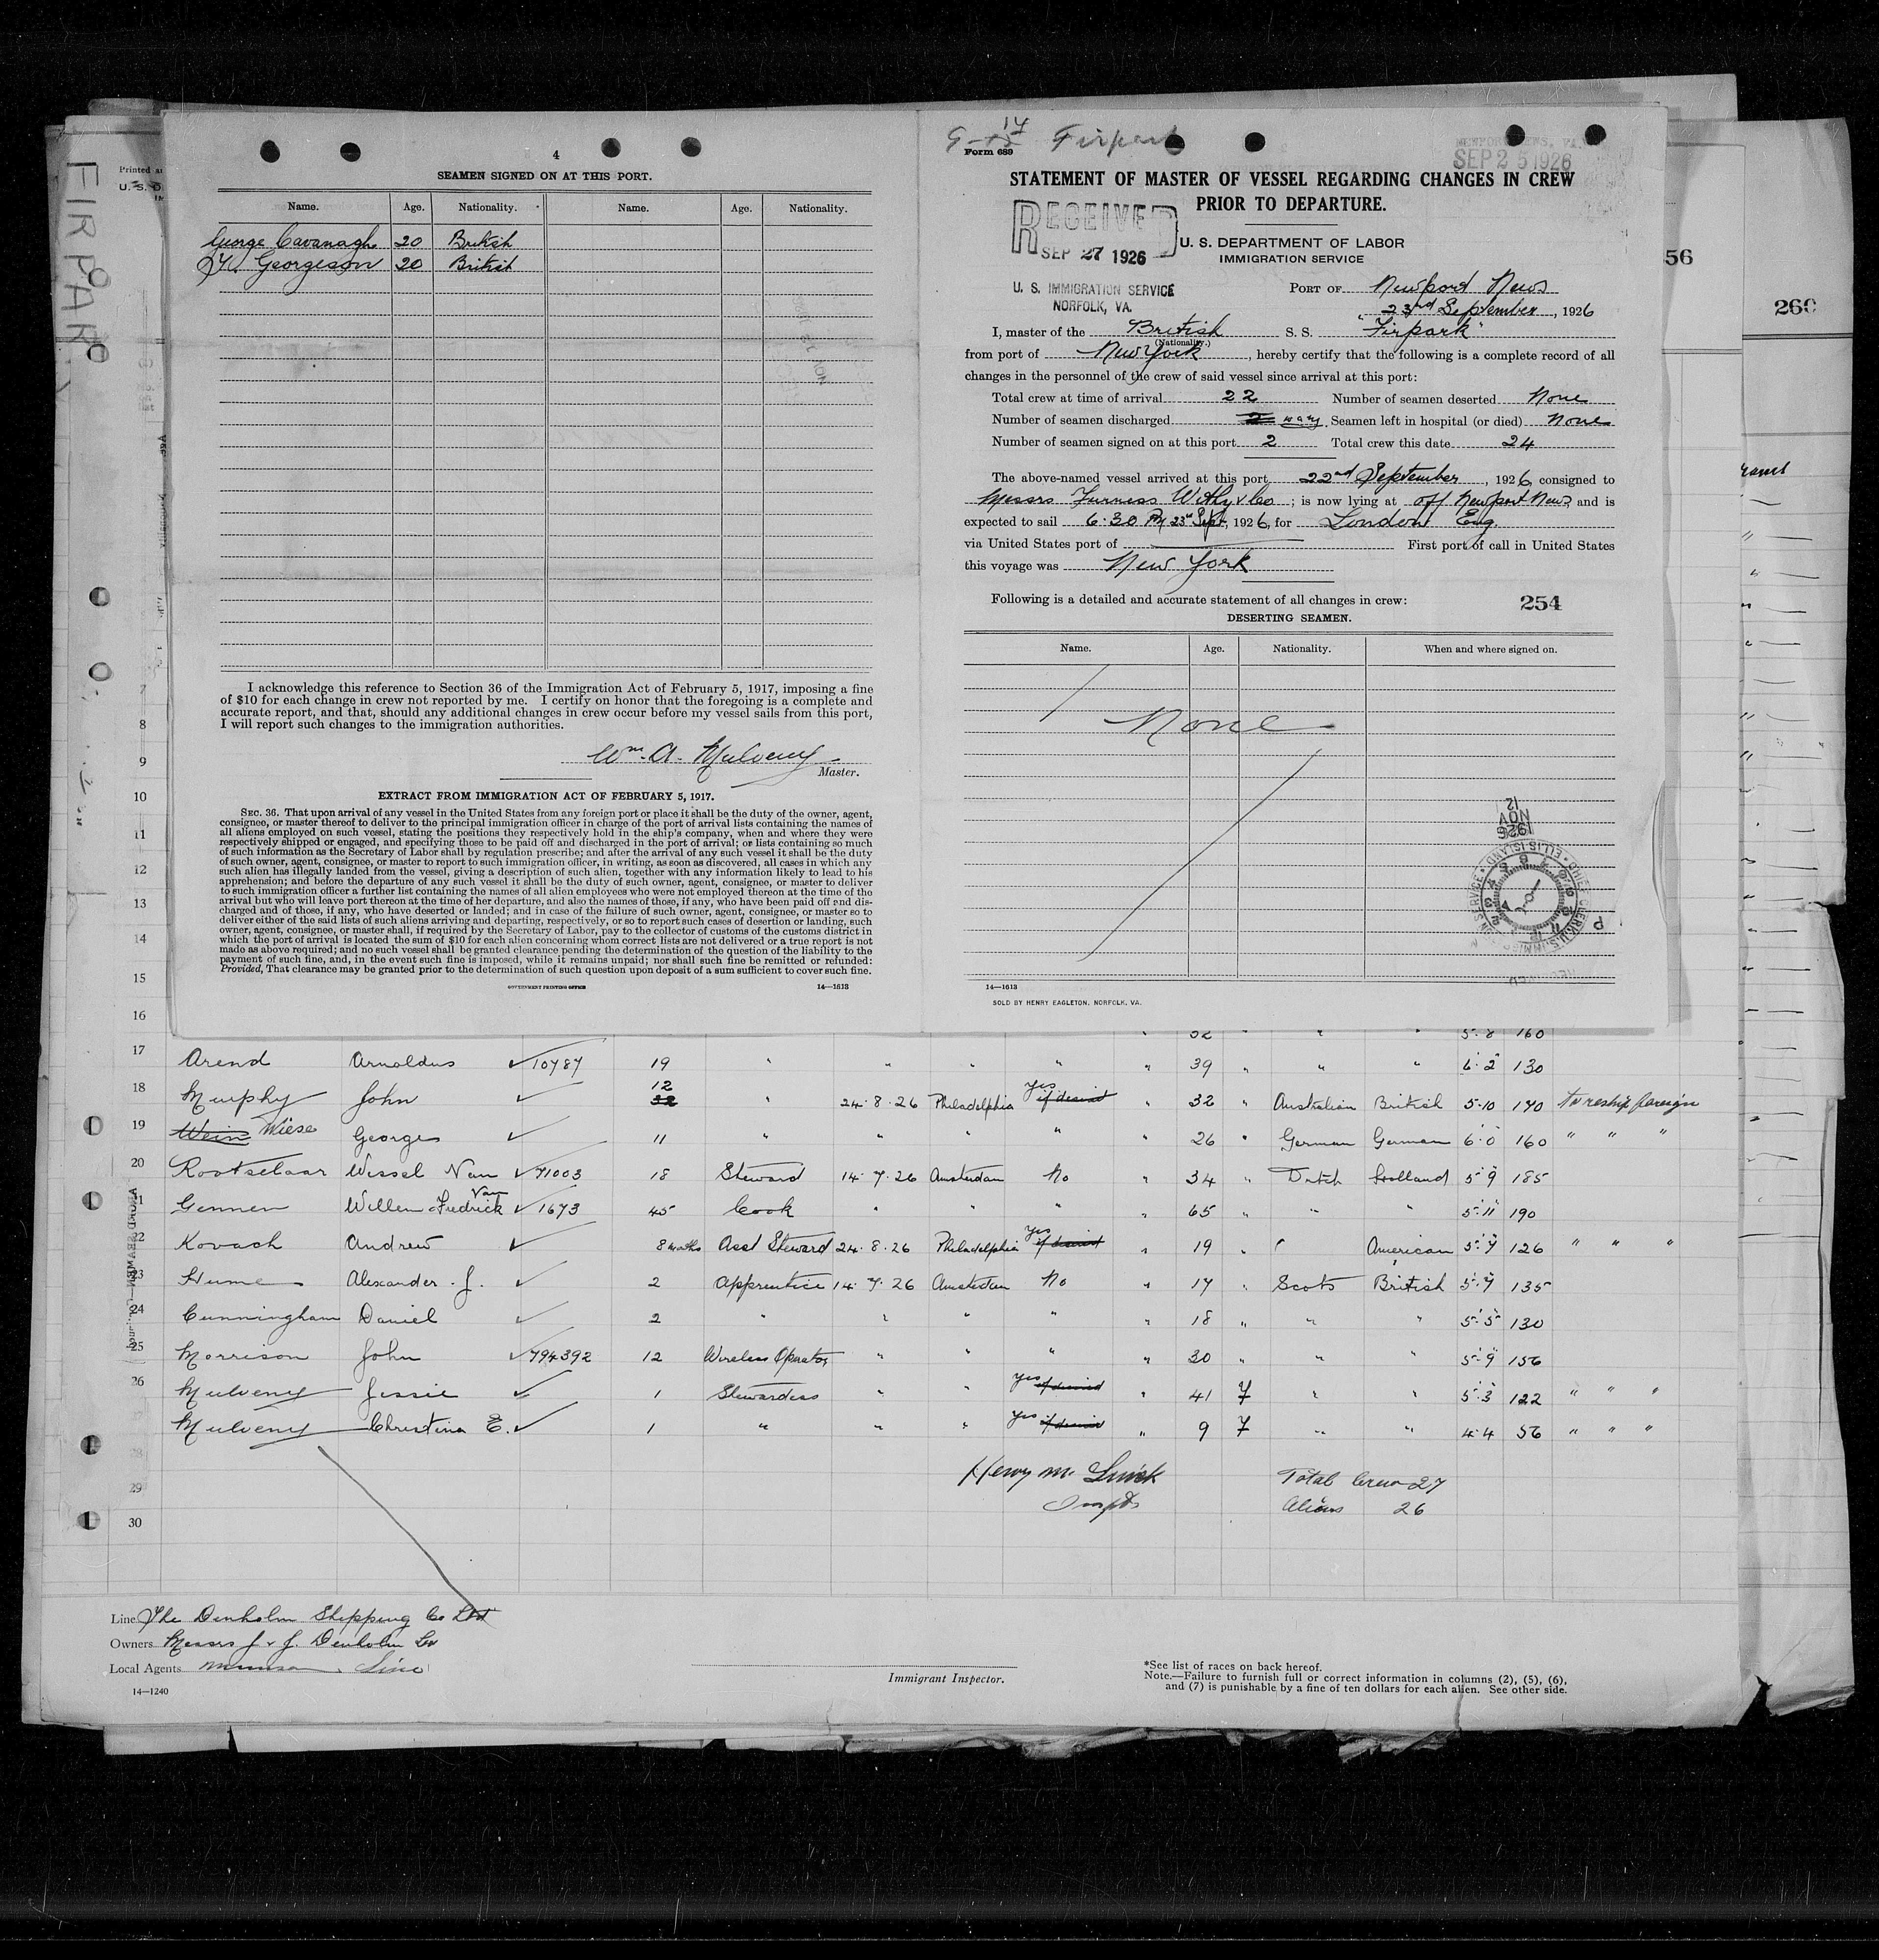 FIRPARK
Printed
U. S. D
4
SEAMEN SIGNED ON AT THIS PORT.
Name. Age. Nationality. Name. Age. Nationality.
George Cavanagh 20 British
Georgeson 20 British
I acknowledge this reference to Section 36 of the Immigration Act of February 5, 1917, imposing a fine
of $10 for each change in crew not reported by me. I certify on honor that the foregoing is a complete and
accurate report, and that, should any additional changes in crew occur before my vessel sails from this port,
I will report such changes to the immigration authorities.
Wm. A. Mulveny
Master.
EXTRACT FROM IMMIGRATION ACT OF FEBRUARY 5, 1917.
SEC. 36. That upon arrival of any vessel in the United States from any foreign port or place it shall be the duty of the owner, agent,
consignee, or master thereof to deliver to the principal immigration officer in charge of the port of arrival lists containing the names of
all aliens employed on such vessel, stating the positions they respectively hold in the ship's company, when and where they were
respectively shipped or engaged, and specifying those to be paid off and discharged in the port of arrival; or lists containing so much
of such information as the Secretary of Labor shall by regulation prescribe; and after the arrival of any such vessel it shall be the duty
of such owner, agent, consignee, or master to report to such immigration officer, in writing, as soon as discovered, all cases in which any
such alien has illegally landed from the vessel, giving a description of such alien, together with any information likely to lead to his
apprehension; and before the departure of any such vessel it shall be the duty of such owner, agent, consignee, or master to deliver
to such immigration officer a further list containing the names of all alien employees who were not employed thereon at the time of the
arrival but who will leave port thereon at the time of her departure, and also the names of those, if any, who have been paid off and dis-
charged and of those, if any, who have deserted or landed; and in case of the failure of such owner, agent, consignee, or master so to
deliver either of the said lists of such aliens arriving and departing, respectively, or so to report such cases of desertion or landing, such
owner, agent, consignee, or master shall, if required by the Secretary of Labor, pay to the collector of customs of the customs district in
which the port of arrival is located the sum of $10 for each alien concerning whom correct lists are not delivered or a true report is not
made as above required; and no such vessel shall be granted clearance pending the determination of the question of the liability to the
payment of such fine, and, in the event such fine is imposed, while it remains unpaid; nor shall such fine be remitted or refunded:
Provided, That clearance may be granted prior to the determination of such question upon deposit of a sum sufficient to cover such fine.
GOVERNMENT PRINTING OFFICE 14—1613
17
Firpark
Form 689
NEWPORT NEWS, VA.
SEP 25 1926
STATEMENT OF MASTER OF VESSEL REGARDING CHANGES IN CREW
PRIOR TO DEPARTURE.
RECEIVED
SEP 27 1926
U. S. IMMIGRATION SERVICE
NORFOLK, VA.
U. S. DEPARTMENT OF LABOR
IMMIGRATION SERVICE
PORT OF Newport News
23rd September, 1926
I, master of the British S. S. "Firpark"
(Nationality.)
from port of New York, hereby certify that the following is a complete record of all
changes in the personnel of the crew of said vessel since arrival at this port:
Total crew at time of arrival 22 Number of seamen deserted None
Number of seamen discharged 2 Seamen left in hospital (or died) None
Number of seamen signed on at this port 2 Total crew this date 24
The above-named vessel arrived at this port 22nd September, 1926, consigned to
Messrs Furness Withy & Co; is now lying at off Newport News, and is
expected to sail 6.30 PM 23rd Sept, 1926, for London Eng.
via United States port of First port of call in United States
this voyage was New York
Following is a detailed and accurate statement of all changes in crew:
254
DESERTING SEAMEN.
Name. Age. Nationality. When and where signed on.
None
12
NOV
1926
14—1613
SOLD BY HENRY EAGLETON, NORFOLK, VA.
56
260
7
8
9
10
11
12
13
14
15
16 32 " " " 5.8 160
17 Arend Arnoldus 10787 19 " " " " " 39 " " " 6.2 130
18 Murphy John 12 32 " 24.8.26 Philadelphia yes if desired " 32 " Australian British 5.10 140 to reship foreign
19 Wein Wiese George 11 " " " " " 26 " German German 6.0 160 " " "
20 Rootselaar Wessel Van 71003 18 Steward 14.7.26 Amsterdam No " 34 " Dutch Holland 5.9 185
21 Gennen Willem Fredrick Van 1673 45 Cook " " " " 65 " " " 5.11 190
22 Kovach Andrew 8 months Asst Steward 24.8.26 Philadelphia yes if desired " 19 " " American 5.7 126 " " "
23 Hume Alexander J. 2 Apprentice 14.7.26 Amsterdam No " 17 " Scots British 5.7 135
24 Cunningham Daniel 2 " " " " " 18 " " " 5.5 130
25 Morrison John 794392 12 Wireless Operator " " " " 30 " " " 5.9 156
26 Mulveny Jessie 1 Stewardess " " yes if desired " 41 F " " 5.3 122 " " "
27 Mulveny Christina E. 1 " " " yes if desired " 9 F " " 4.4 56 " " "
28
29
30
Total Crew 27
Aliens 26
Line The Denholm Shipping Co Ltd
Owners Messrs J. & J. Denholm Ld
Local Agents Munson Line
14—1240
Immigrant Inspector.
*See list of races on back hereof.
Note.—Failure to furnish full or correct information in columns (2), (5), (6),
and (7) is punishable by a fine of ten dollars for each alien. See other side.